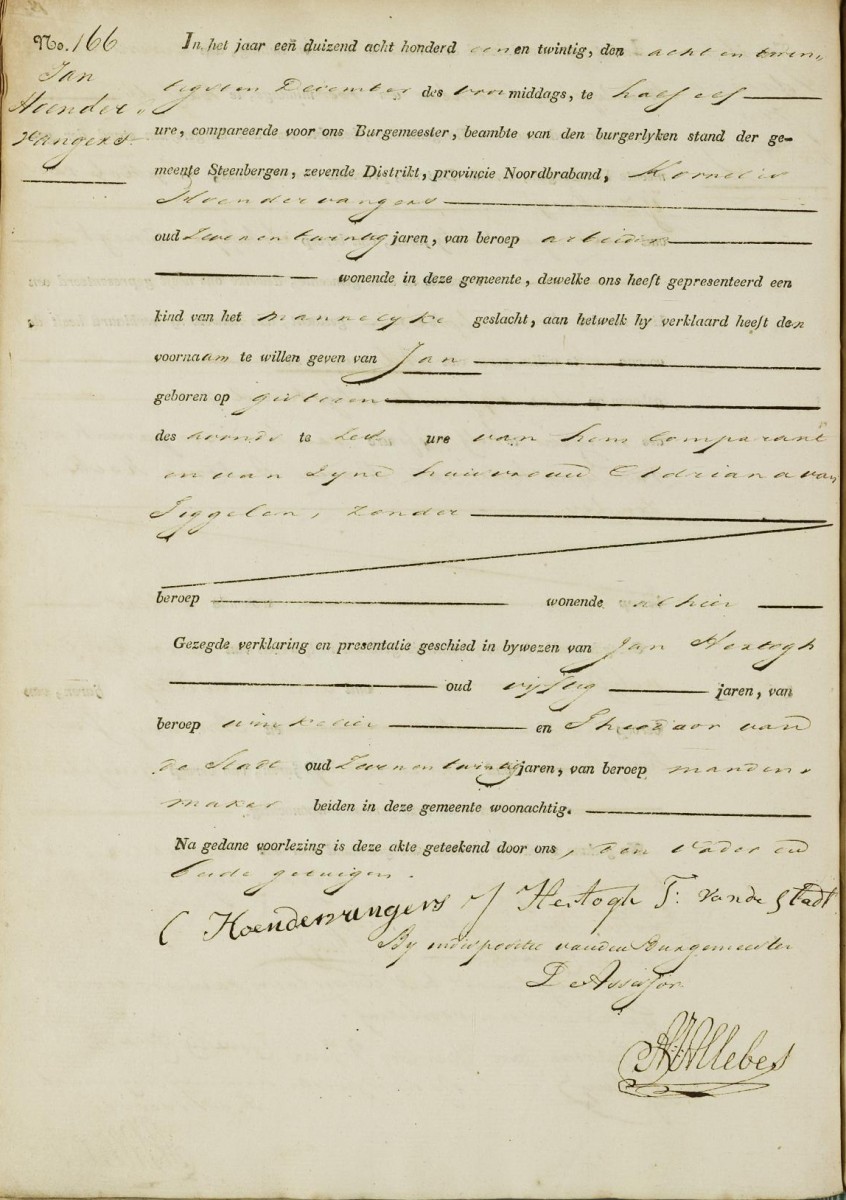 No. 166
Jan
Hoender-
vangers
In het jaar een duizend acht honderd een en twintig, den acht en twin-
tigsten December des voormiddags, te half elf
ure, compareerde voor ons Burgemeester, beambte van den burgerlyken stand der ge-
meente Steenbergen, zevende Distrikt, provincie Noordbraband, Kornelis
Hoendervangers
oud zevenentwintig jaren, van beroep arbeider
wonende in deze gemeente, dewelke ons heeft gepresenteerd een
kind van het mannelyke geslacht, aan hetwelk hy verklaard heeft den
voornaam te willen geven van Jan
geboren op gisteren
des avonds te zes ure van hem comparant
en van zyne huisvrouw Adriana van
Teggelen, zonder
beroep wonende alhier
Gezegde verklaring en presentatie geschied in bywezen van Jan Hertogh
oud vyftig jaren, van
beroep winkelier en Theodoor van
de Stadt oud zevenentwintig jaren, van beroep manden-
maker beiden in deze gemeente woonachtig.
Na gedane voorlezing is deze akte geteekend door ons, den vader en
beide getuigen.
C Hoendervangers J Hertogh T: vande Stadt
By indispositie van den Burgemeester
D Assessor
Allebes